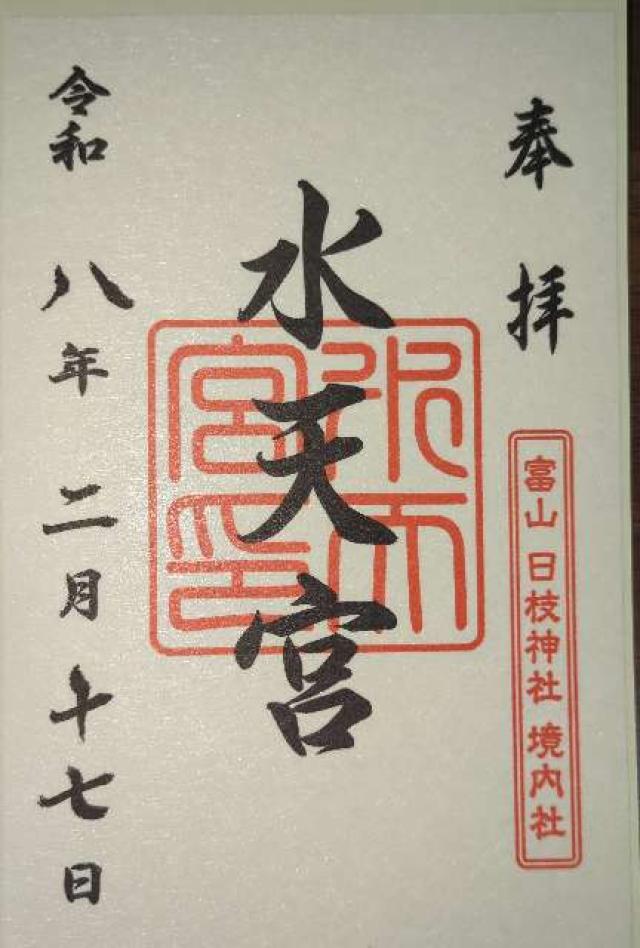 奉拝
富山 日枝神社 境内社
水天宮
水天宮印
令和八年二月十七日